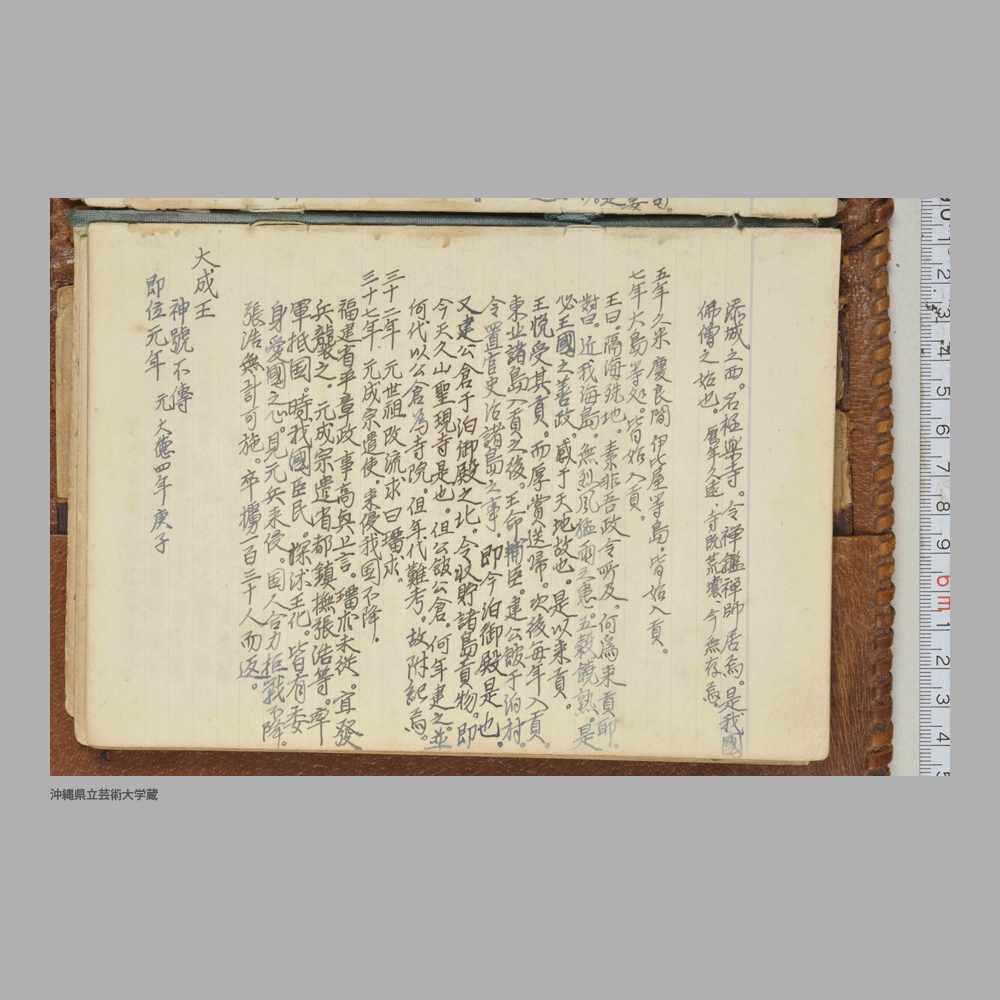 添城之西。名極楽寺。令禅鑑禅師居焉。是我國
佛僧之始也 暦年久遠、寺既荒壊、今無存焉
五年久米慶良間伊比屋等島。皆始入貢。
七年大島等処。皆始入貢。
王曰。隔海殊地。素非吾政令所及。何為来貢耶。
對曰。近我海島。無烈風猛雨之患。五穀饒熟。是
必王國之善政。感于天地故也。是以来貢。
王悦受其貢。而厚賞送帰。次後毎年入貢。
東北諸島入貢之後。王命輔臣。建公館于泊村。
令置官吏治諸島之事。即今泊御殿是也。
又建公倉于泊御殿之北。令収貯諸島貢物。即
今天久山聖現寺是也。但公館公倉。何年建之。並
何代以公倉為寺院。但年代難考。故附紀焉。
三十二年 元世祖改流求曰瑠求。
三十七年 元成宗遣使、来侵我国不降。
福建省平章政事高興上言。瑠求未従。宜發
兵襲之。元成宗遣省都鎮撫張浩等。率
軍抵国。時我國臣民。深沐王化。皆有委
身愛國之心。見元兵来侵。国人合力拒戰不降。
張浩無計可施。卒擄一百三十人而返。
大成王
神號不傳
即位元年 元大徳四年庚子
沖縄県立芸術大学蔵